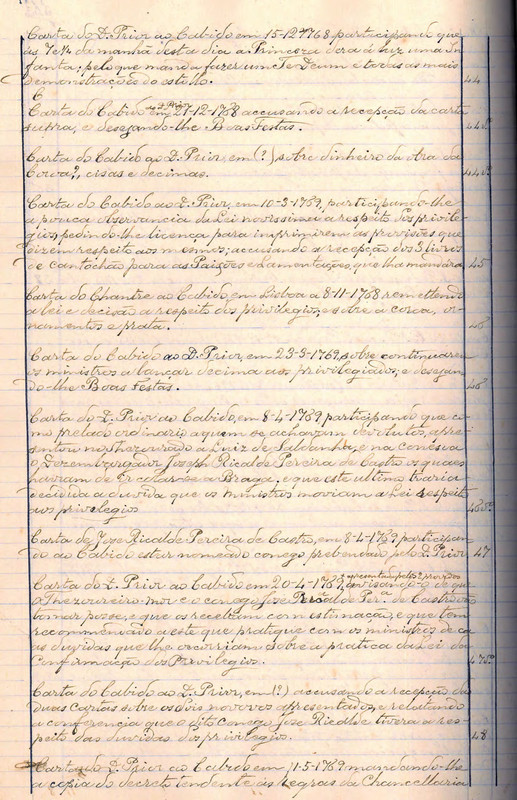 Carta do D. Prior ao Cabido em 15-12-1768 participando que
ás 7 e ¼ da manhã desta dia a Princeza dera á luz uma In
fanta; pelo que manda fazer um Te Deum e todas as mais
demonstrações do estillo. 44
C
Carta do Cabido ao D. Prior em 27-12-1768 accusando a recepção da carta
supra, e desejando-lhe Boas Festas. 44vº
Carta do Cabido ao D. Prior, em (?) sobre dinheiro da obra da
Coroa?, cisas e decimas. 44vº
Carta do Cabido ao D. Prior, em 10-3-1769, participando-lhe
a pouca observancia da Lei novissima a respeito dos privile-
gios, pedindo-lhe licença para imprimirem as provisões que
dizem respeito aos mesmos; accusando a recepção dos 3 livros
de cantochão para as Paixões e Lamentações, que lha mandára 45
Carta do Chantre ao Cabido, em Lisboa a 8-11-1768 remettendo
a lei e decisão a respeito dos privilegios, e sobre a coroa, or-
namentos e prata. 46
Carta do Cabido ao D. Prior, em 23-3-1769, sobre continuarem
os ministros a lançar decima aos privilegiados; e desejan
do-lhe Boas Festas. 46
Carta do D. Prior ao Cabido, em 8-4-1769 participando que co-
mo prelado ordinario a quem se achavam devolutos, apre-
sentou no thezourado a Luiz de Saldanha, e na conesia
o Dezembargador Joseph Ricalde Pereira de Castro os quaes
haviam de ir collar-se a Braga, e que este ultimo traria
decidida a duvida que os ministros moviam a Lei respeito
aos privilegios 46vº
Carta de José Ricalde Pereira de Castro, em 8-4-1769 participan-
do ao Cabido estar nomeado conego prebendado pelo D. Prior 47
Carta do D. Prior ao Cabido em 20-4-1769, avisando-o de que
apresentado pelos providos
o Thezoureiro-mór e o conego José Ricalde Per.ª de Castro vão
tomar posse, e que os recebam com estimação, e que tem
recommendado a este que pratique com os ministros de cá
as duvidas que lhe occorriam sobre a pratica da Lei da
Confirmação dos Privilegios. 47vº
Carta do Cabido ao D. Prior, em (?) accusando a recepção das
duas cartas sobre os dois novos apresentados, e relatando
a conferencia que o dito conego José Ricalde tivera a res-
peito das duvidas dos privilegios. 48
Carta do D. Prior ao Cabido em 11-5-1769 mandando-lhe
a copia do decreto tendente ás Regras da Chancellaria